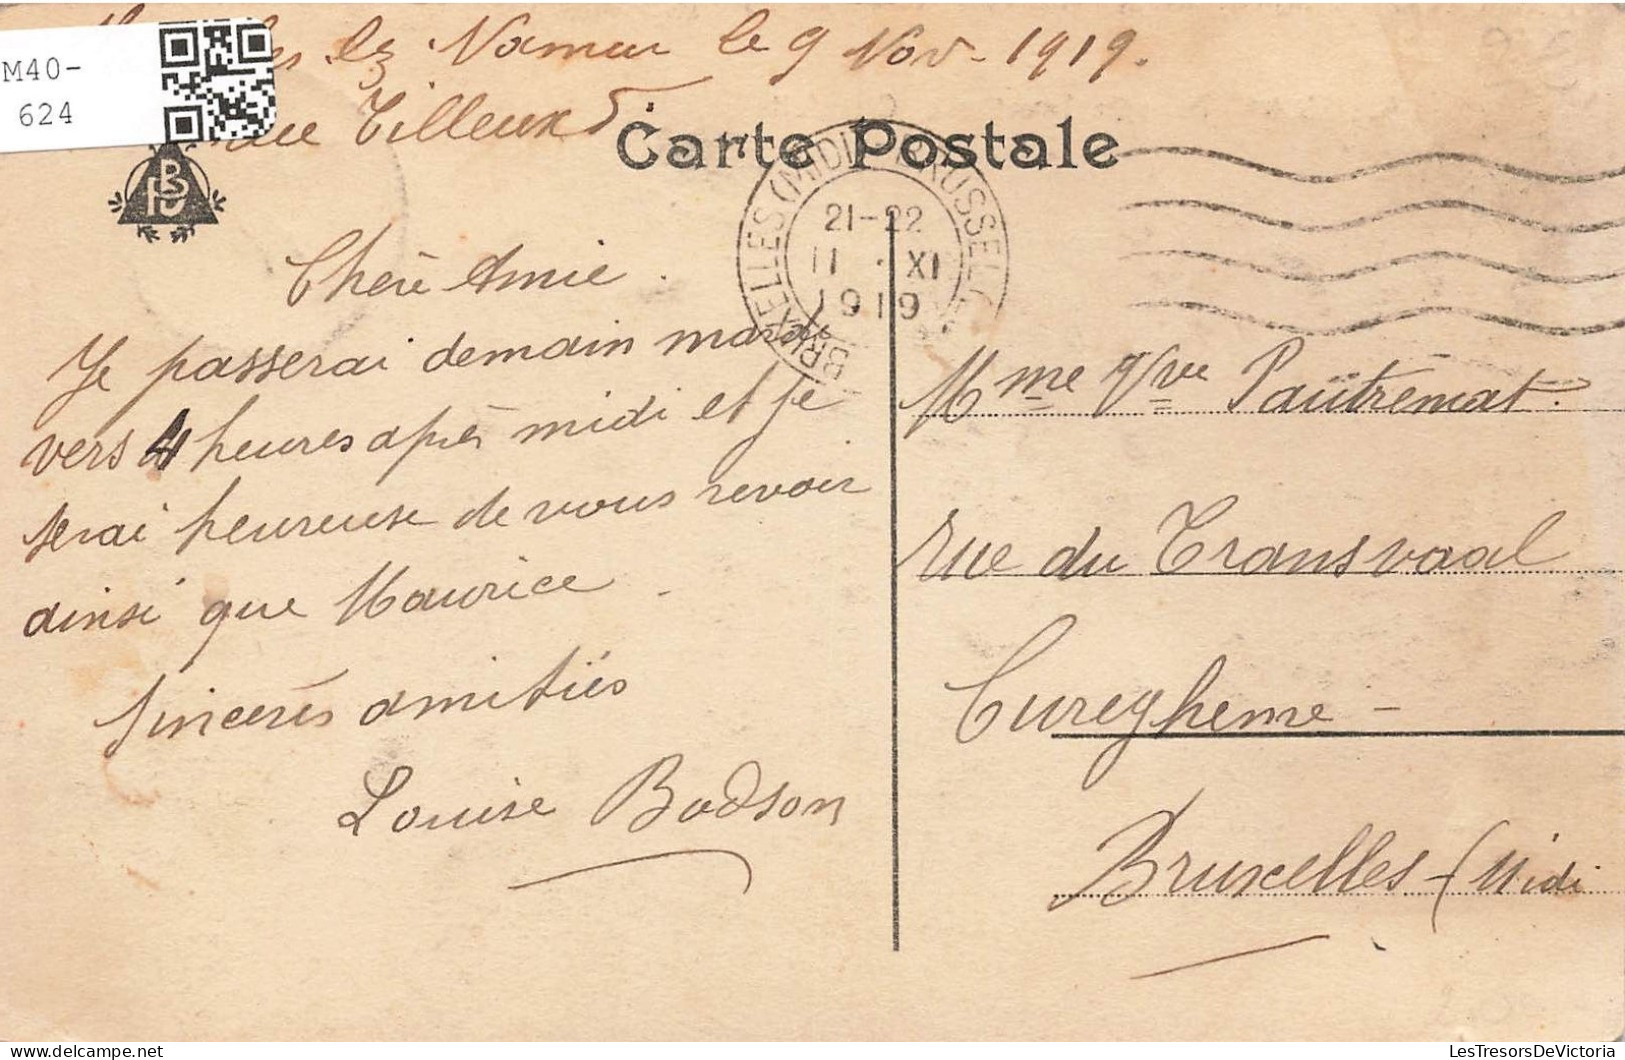 M40-
624
lez Namur le 9 Nov. 1919.
Tilleux 5
Carte Postale
BRUXELLES (MIDI) BRUSSEL
21-22
11 · XI
1919
PBJ
Chère Amie.
Je passerai demain mardi
vers 4 heures après midi et je
serai heureuse de vous revoir
ainsi que Maurice.
Sincères amitiés
Louise Bodson
Mme Vve Pautremat.
rue du Transvaal
Cureghemme -
Bruxelles - (Midi
LesTresorsDeVictoria